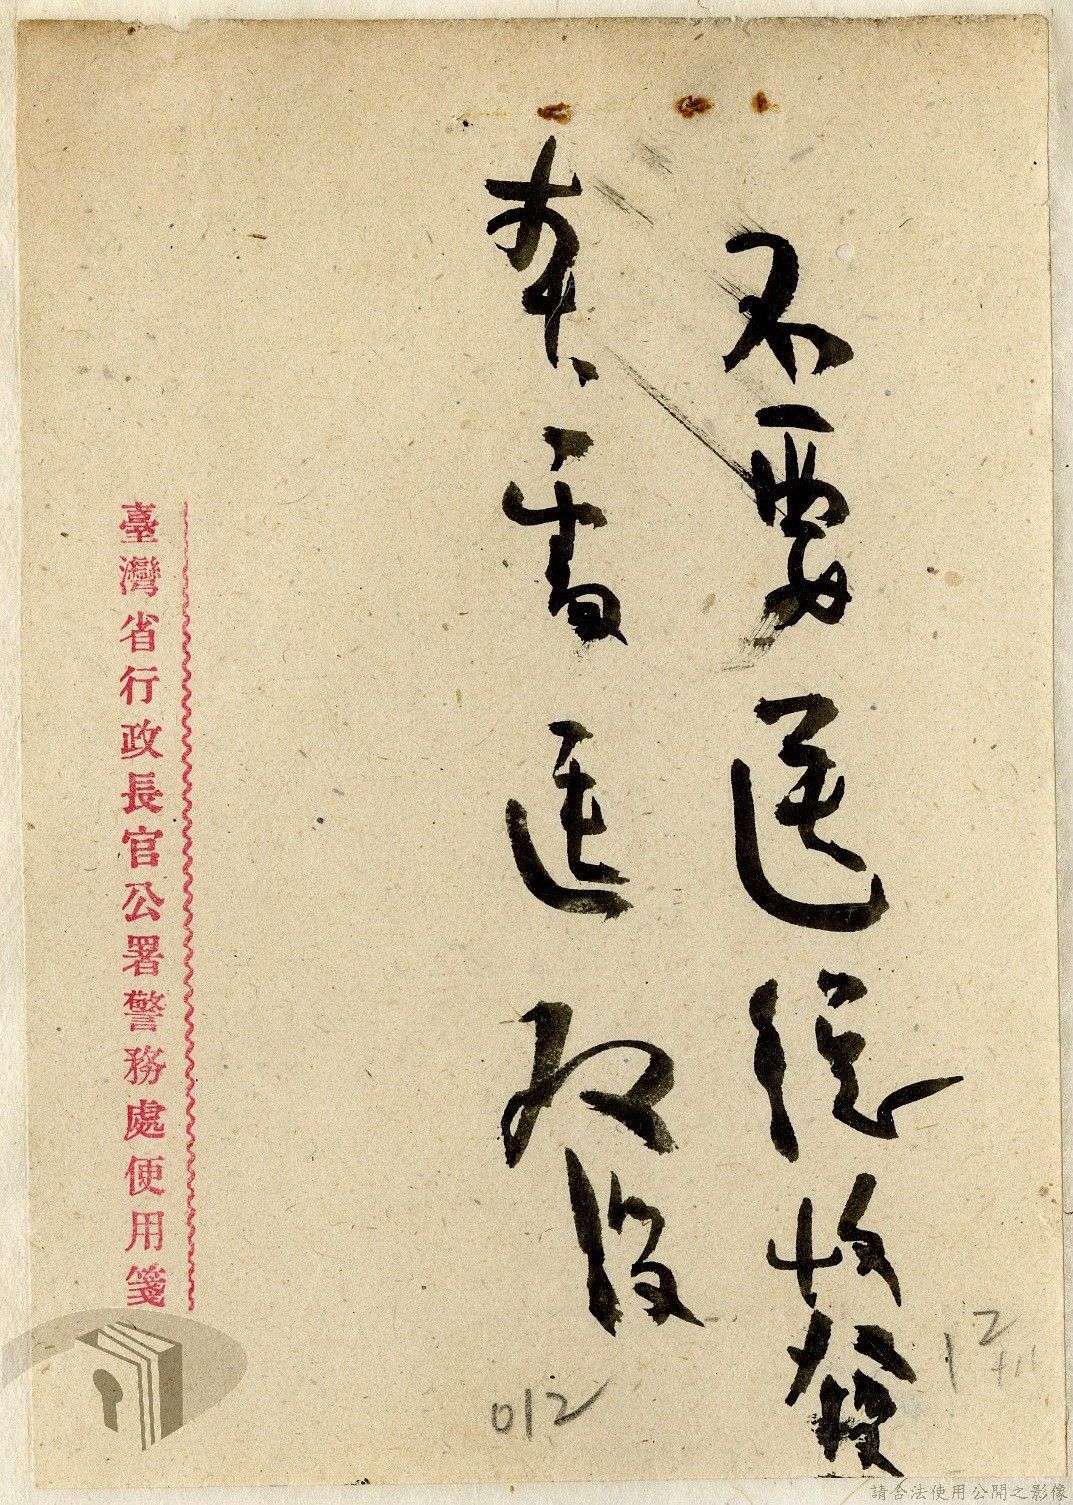 不要送總收發
本署逕取後
臺灣省行政長官公署警務處便用箋
012
12
請合法使用公開之影像